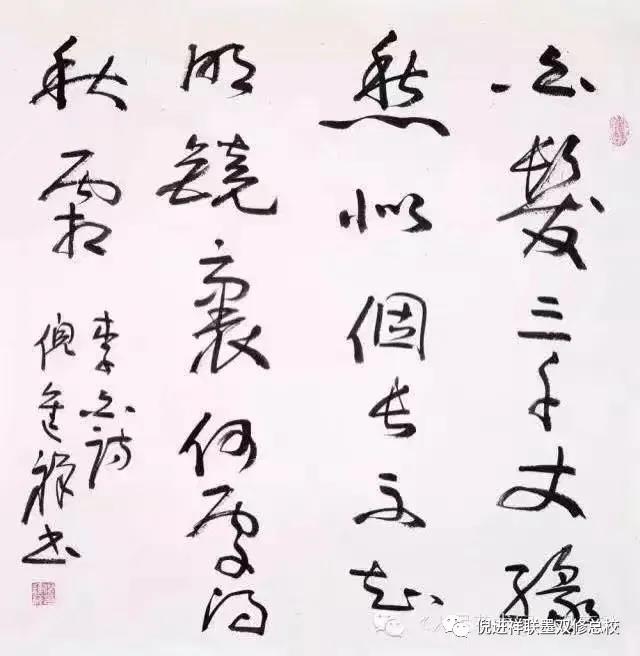 白髮三千丈緣
愁似個长不知
明鏡裏何處得
秋霜
李白詩
倪進祥书
倪进祥联墨双修总校